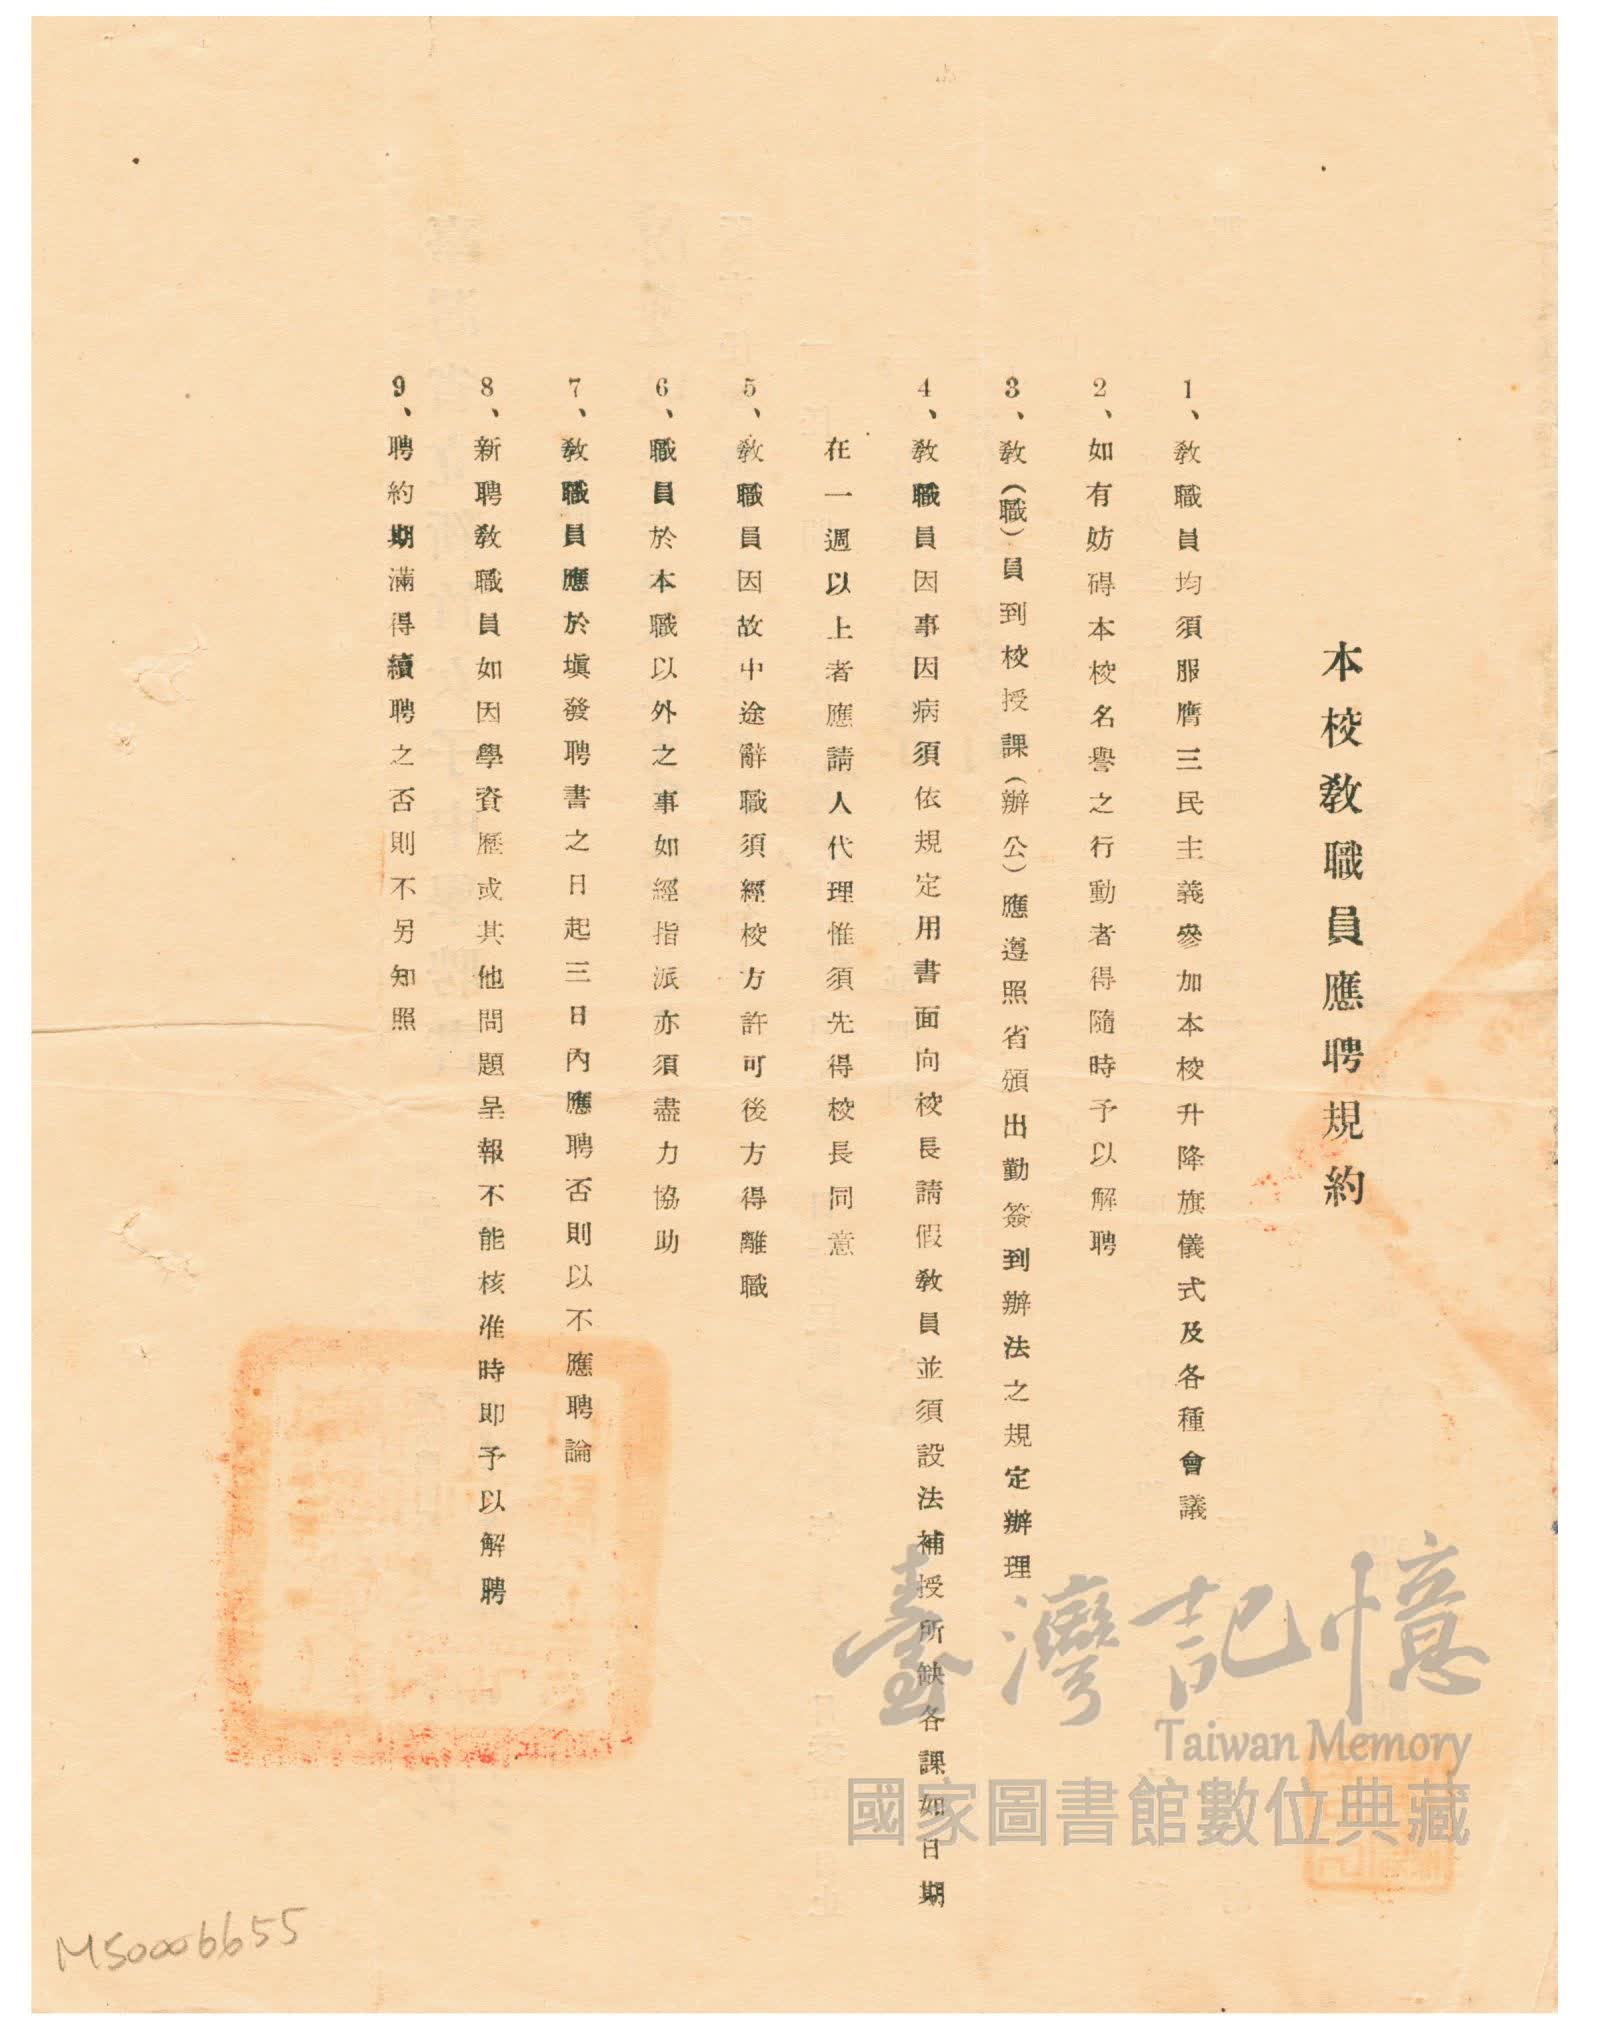 本校教職員應聘規約
1、教職員均須服膺三民主義參加本校升降旗儀式及各種會議
2、如有妨碍本校名譽之行動者得隨時予以解聘
3、教(職)員到校授課(辦公)應遵照省頒出勤簽到辦法之規定辦理
4、教職員因事因病須依規定用書面向校長請假教員並須設法補授所缺各課如日期
在一週以上者應請人代理惟須先得校長同意
5、教職員因故中途辭職須經校方許可後方得離職
6、職員於本職以外之事如經指派亦須盡力協助
7、教職員應於塡發聘書之日起三日內應聘否則以不應聘論
8、新聘教職員如因學資歷或其他問題呈報不能核准時即予以解聘
9、聘約期滿得續聘之否則不另知照
臺灣記憶
Taiwan Memory
國家圖書館數位典藏
MS0006655